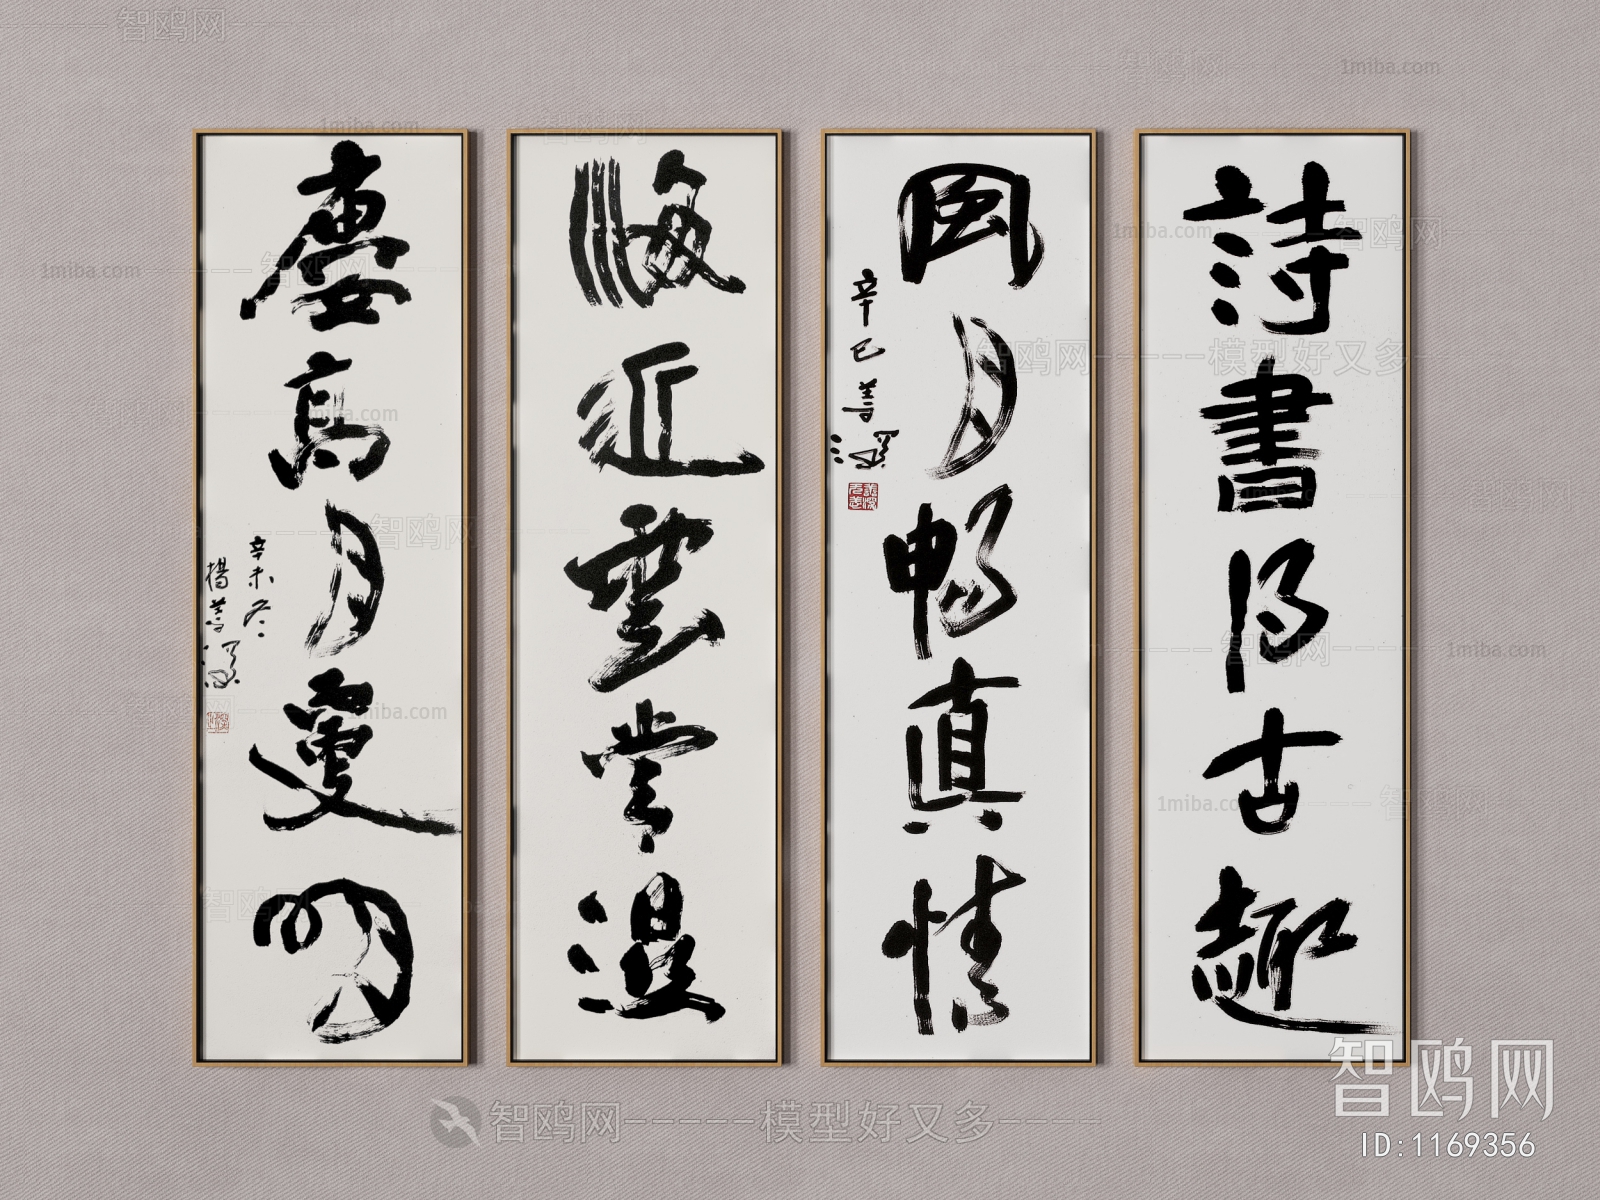 詩書得古趣
風月暢真情
辛巳善深
海近雲常濕
樓高月更明
辛未冬
楊善深
智鸥网
ID:1169356
智鸥网-----模型好又多----
1miba.com